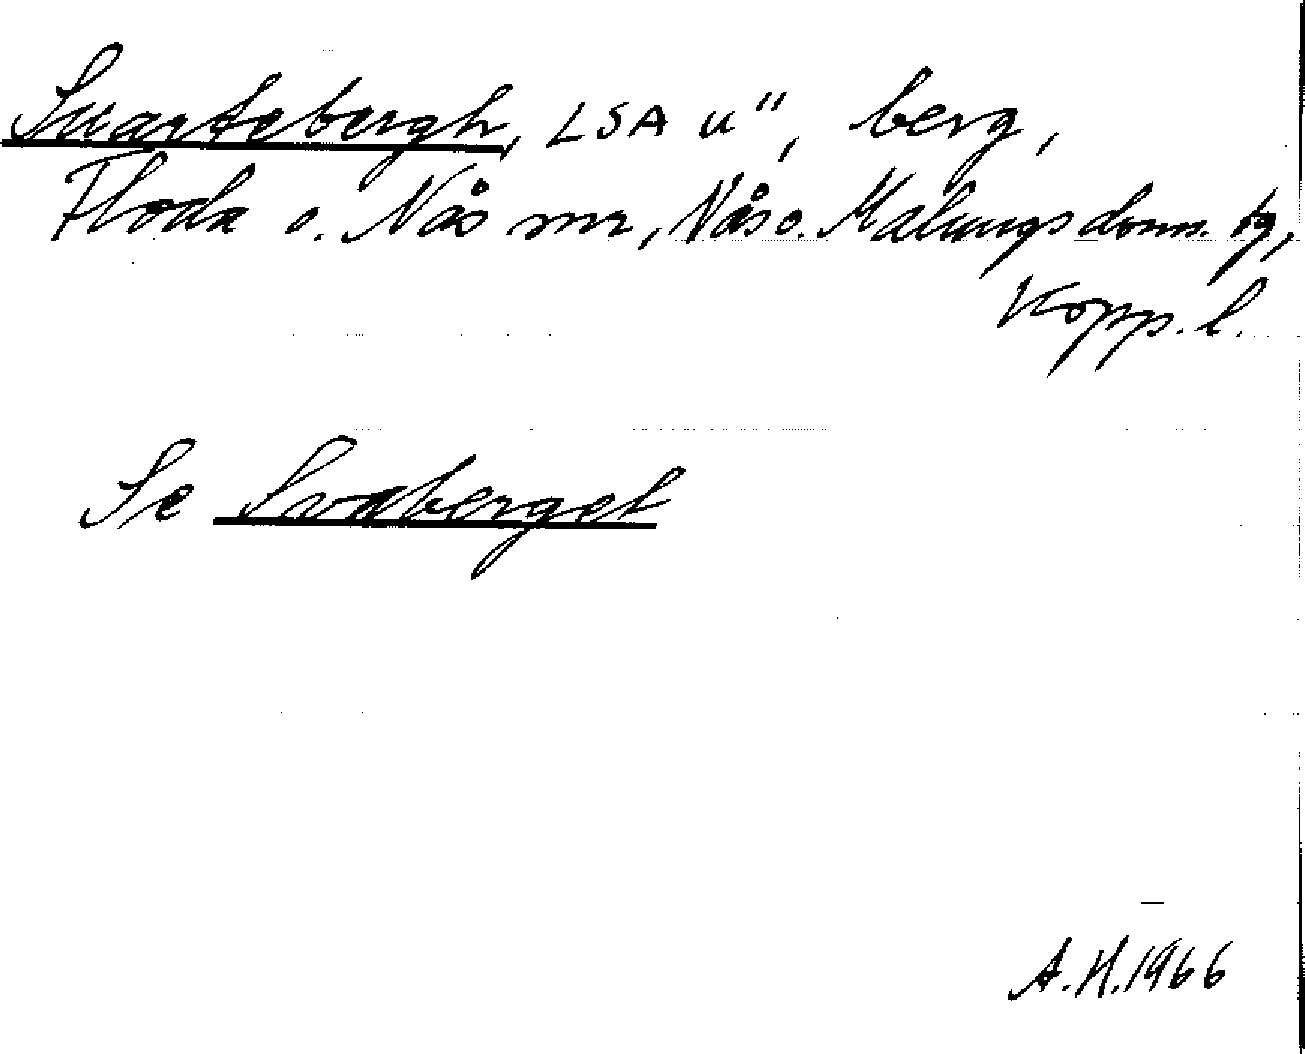 Suartebergh, LSA u", berg,
Floda o. Nås snr, Nås o. Malungs doms. tg,
Kopp. l.
Se Svaberget
A.H. 1966